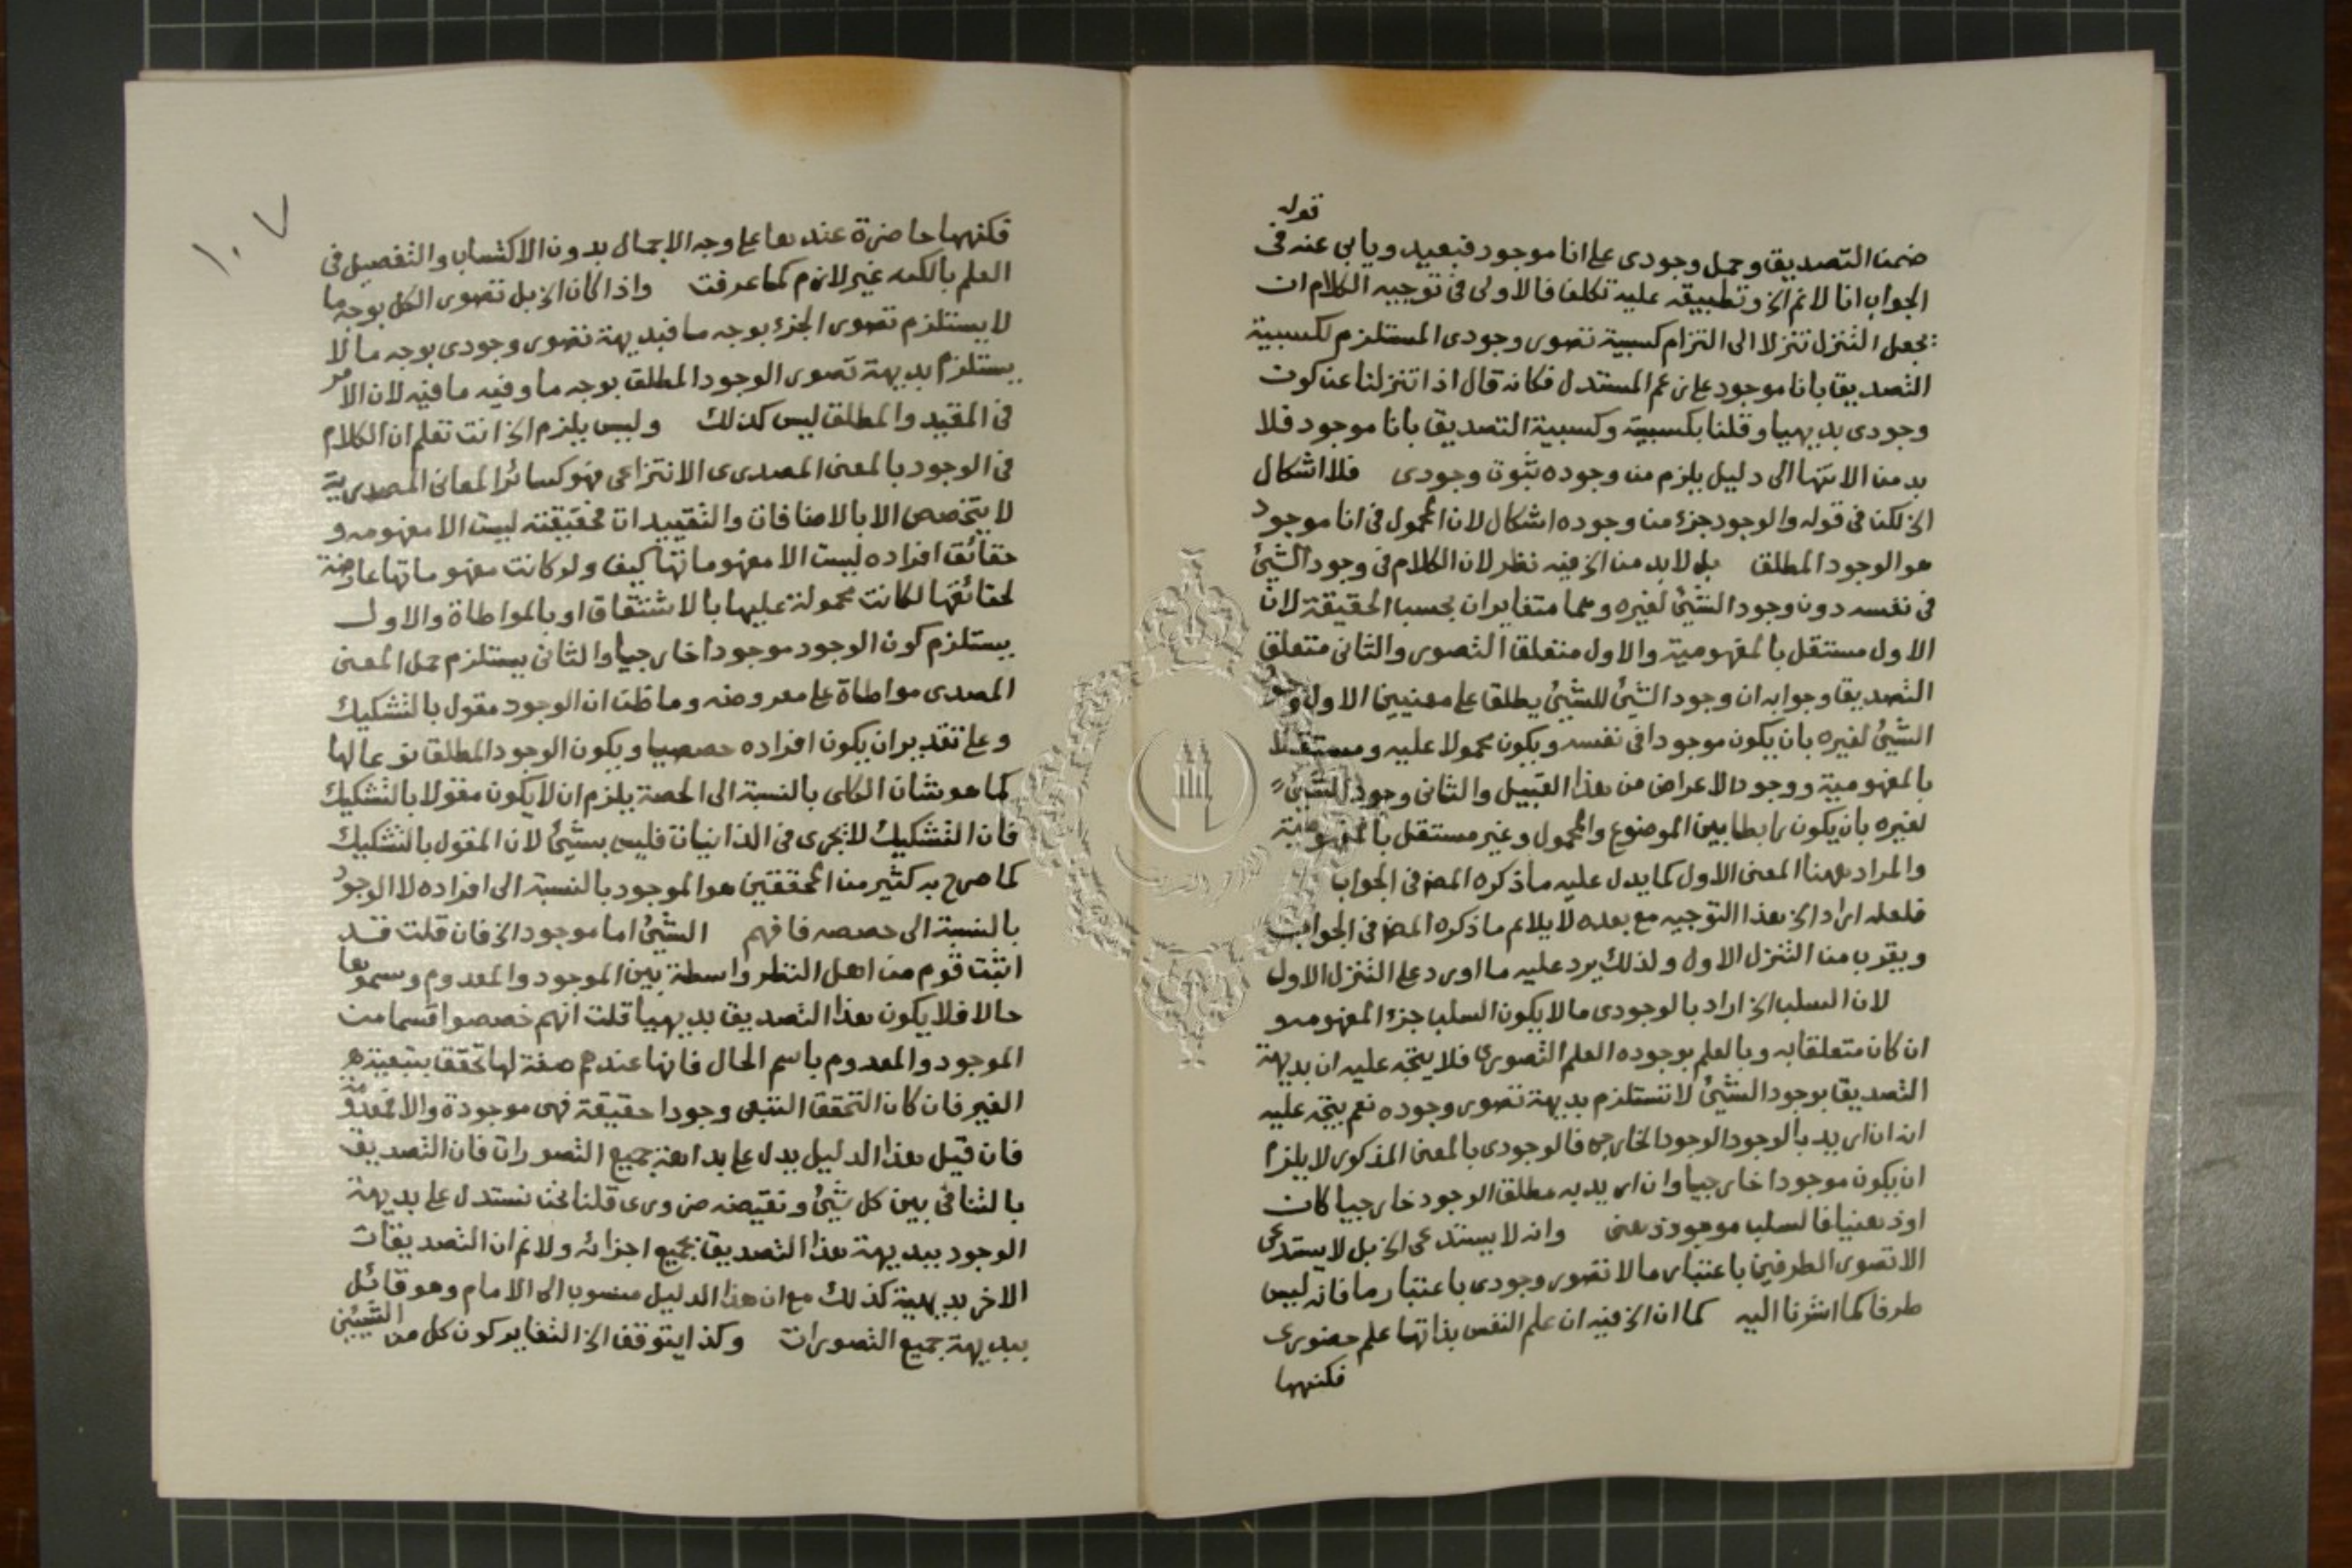 قوله
ضمن التصديق وحمل وجودى على انا موجود فبعيد ويابى عنه فى
الجواب انا لا نم الخ وتطبيقه عليه تكلف فالاولى فى توجيه الكلام ان
يجعل التنزل تنزلا الى التزام كسبية تصور وجودى المستلزم لكسبية
التصديق بانا موجود على زعم المستدل فكانه قال اذا تنزلنا عن كون
وجودى بديهيا وقلنا بكسبيته وكسبية التصديق بانا موجود فلا
بد من الانتها الى دليل يلزم من وجوده ثبوت وجودى فلا اشكال
الخ لكن فى قوله والوجود جزء من وجوده اشكال لان المحمول فى انا موجود
هو الوجود المطلق بل لا بد من الخ فيه نظر لان الكلام فى وجود الشئ
فى نفسه دون وجود الشئ لغيره وهما متغايران بحسب الحقيقة لان
الاول مستقل بالمفهومية والاول متعلق التصور والثانى متعلق
التصديق وجوابه ان وجود الشئ للشئ يطلق على معنيين الاول وجود
الشئ لغيره بان يكون موجودا فى نفسه ويكون محمولا عليه ومستقلا
بالمفهومية ووجود الاعراض من هذا القبيل والثانى وجود الشئ
لغيره بان يكون رابطا بين الموضوع والمحمول وغير مستقل بالمفهومية
والمراد ههنا المعنى الاول كما يدل عليه ما ذكره المص فى الجواب
فلعله اراد الخ هذا التوجيه مع بعده لا يلائم ما ذكره المص فى الجواب
ويقرب من التنزل الاول ولذلك يرد عليه ما اورد على التنزل الاول
لان السلب الخ اراد بالوجودى ما لا يكون السلب جزء المفهومه و
ان كان متعلقا به وبالعلم بوجوده العلم التصورى فلا يتجه عليه ان بديهة
التصديق بوجود الشئ لا تستلزم بديهة تصور وجوده نعم يتجه عليه
انه ان اريد بالوجود الوجود الخارجى فالوجودى بالمعنى المذكور لا يلزم
ان يكون موجودا خارجيا وان اريد به مطلق الوجود خارجيا كان
او ذهنيا فالسلب موجود ذهنى وانه لا يستدعى الخ بل لا يستدعى
الا تصور الطرفين باعتبار ما لا تصور وجودى باعتبار ما فانه ليس
طرفا كما اشرنا اليه كما ان الخ فيه ان علم النفس بذاتها علم حضورى
فكنهها
١٠٧
فكنهها حاضرة عندها على وجه الاجمال بدون الاكتساب والتفصيل فى
العلم بالكنه غير لازم كما عرفت واذا كان الخ بل تصور الكل بوجه ما
لا يستلزم تصور الجزء بوجه ما فبديهة تصور وجودى بوجه ما لا
يستلزم بديهة تصور الوجود المطلق بوجه ما وفيه ما فيه لان الامر
فى المقيد والمطلق ليس كذلك وليس يلزم الخ انت تعلم ان الكلام
فى الوجود بالمعنى المصدرى الانتزاعى فهو كسائر المعانى المصدرية
لا يتخصص الا بالاضافات والتقييدات فحقيقته ليست الا مفهومه و
حقائق افراده ليست الا مفهوماتها كيف ولو كانت مفهوماتها عارضة
لحقائقها لكانت محمولة عليها بالاشتقاق او بالمواطاة والاول
يستلزم كون الوجود موجودا خارجيا والثانى يستلزم حمل المعنى
المصدرى مواطاة على معروضه وما ظن ان الوجود مقول بالتشكيك
وعلى تقدير ان يكون افراده حصصا ويكون الوجود المطلق نوعا لها
كما هو شان الكلى بالنسبة الى الحصة يلزم ان لا يكون مقولا بالتشكيك
فان التشكيك لا يجرى فى الذاتيات فليس بشئ لان المقول بالتشكيك
كما صرح به كثير من المحققين هو الموجود بالنسبة الى افراده لا الوجود
بالنسبة الى حصصه فافهم الشئ اما موجود الخ فان قلت قد
اثبت قوم من اهل النظر واسطة بين الموجود والمعدوم وسموها
حالا فلا يكون هذا التصديق بديهيا قلت انهم خصصوا قسما من
الموجود والمعدوم باسم الحال فانها عندهم صفة لها تحقق بتبعية
الغير فان كان التحقق التبعى وجودا حقيقة فهى موجودة والا فمعدومة
فان قيل هذا الدليل يدل على بداهة جميع التصورات فان التصديق
بالتنافى بين كل شئ ونقيضه ضرورى قلنا نحن نستدل على بديهة
الوجود ببديهة هذا التصديق بجميع اجزائه ولا نم ان التصديقات
الاخر بديهية كذلك مع ان هذا الدليل منسوب الى الامام وهو قائل
ببديهة جميع التصورات وكذا يتوقف الخ التغاير كون كل من الشيئين